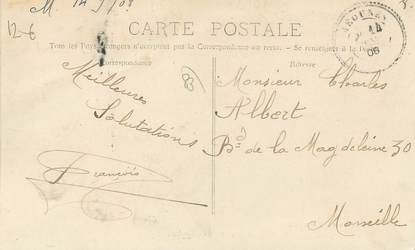 M. 14 / 9 / 08
12-6
CARTE POSTALE
Tous les Pays étrangers n'acceptent pas la Correspondance au recto. - Se renseigner à la Poste
Correspondance
Adresse
83
Meilleures
Salutations
François
Monsieur Charles
Albert
Bd de la Magdeleine 30
Marseille
14
08